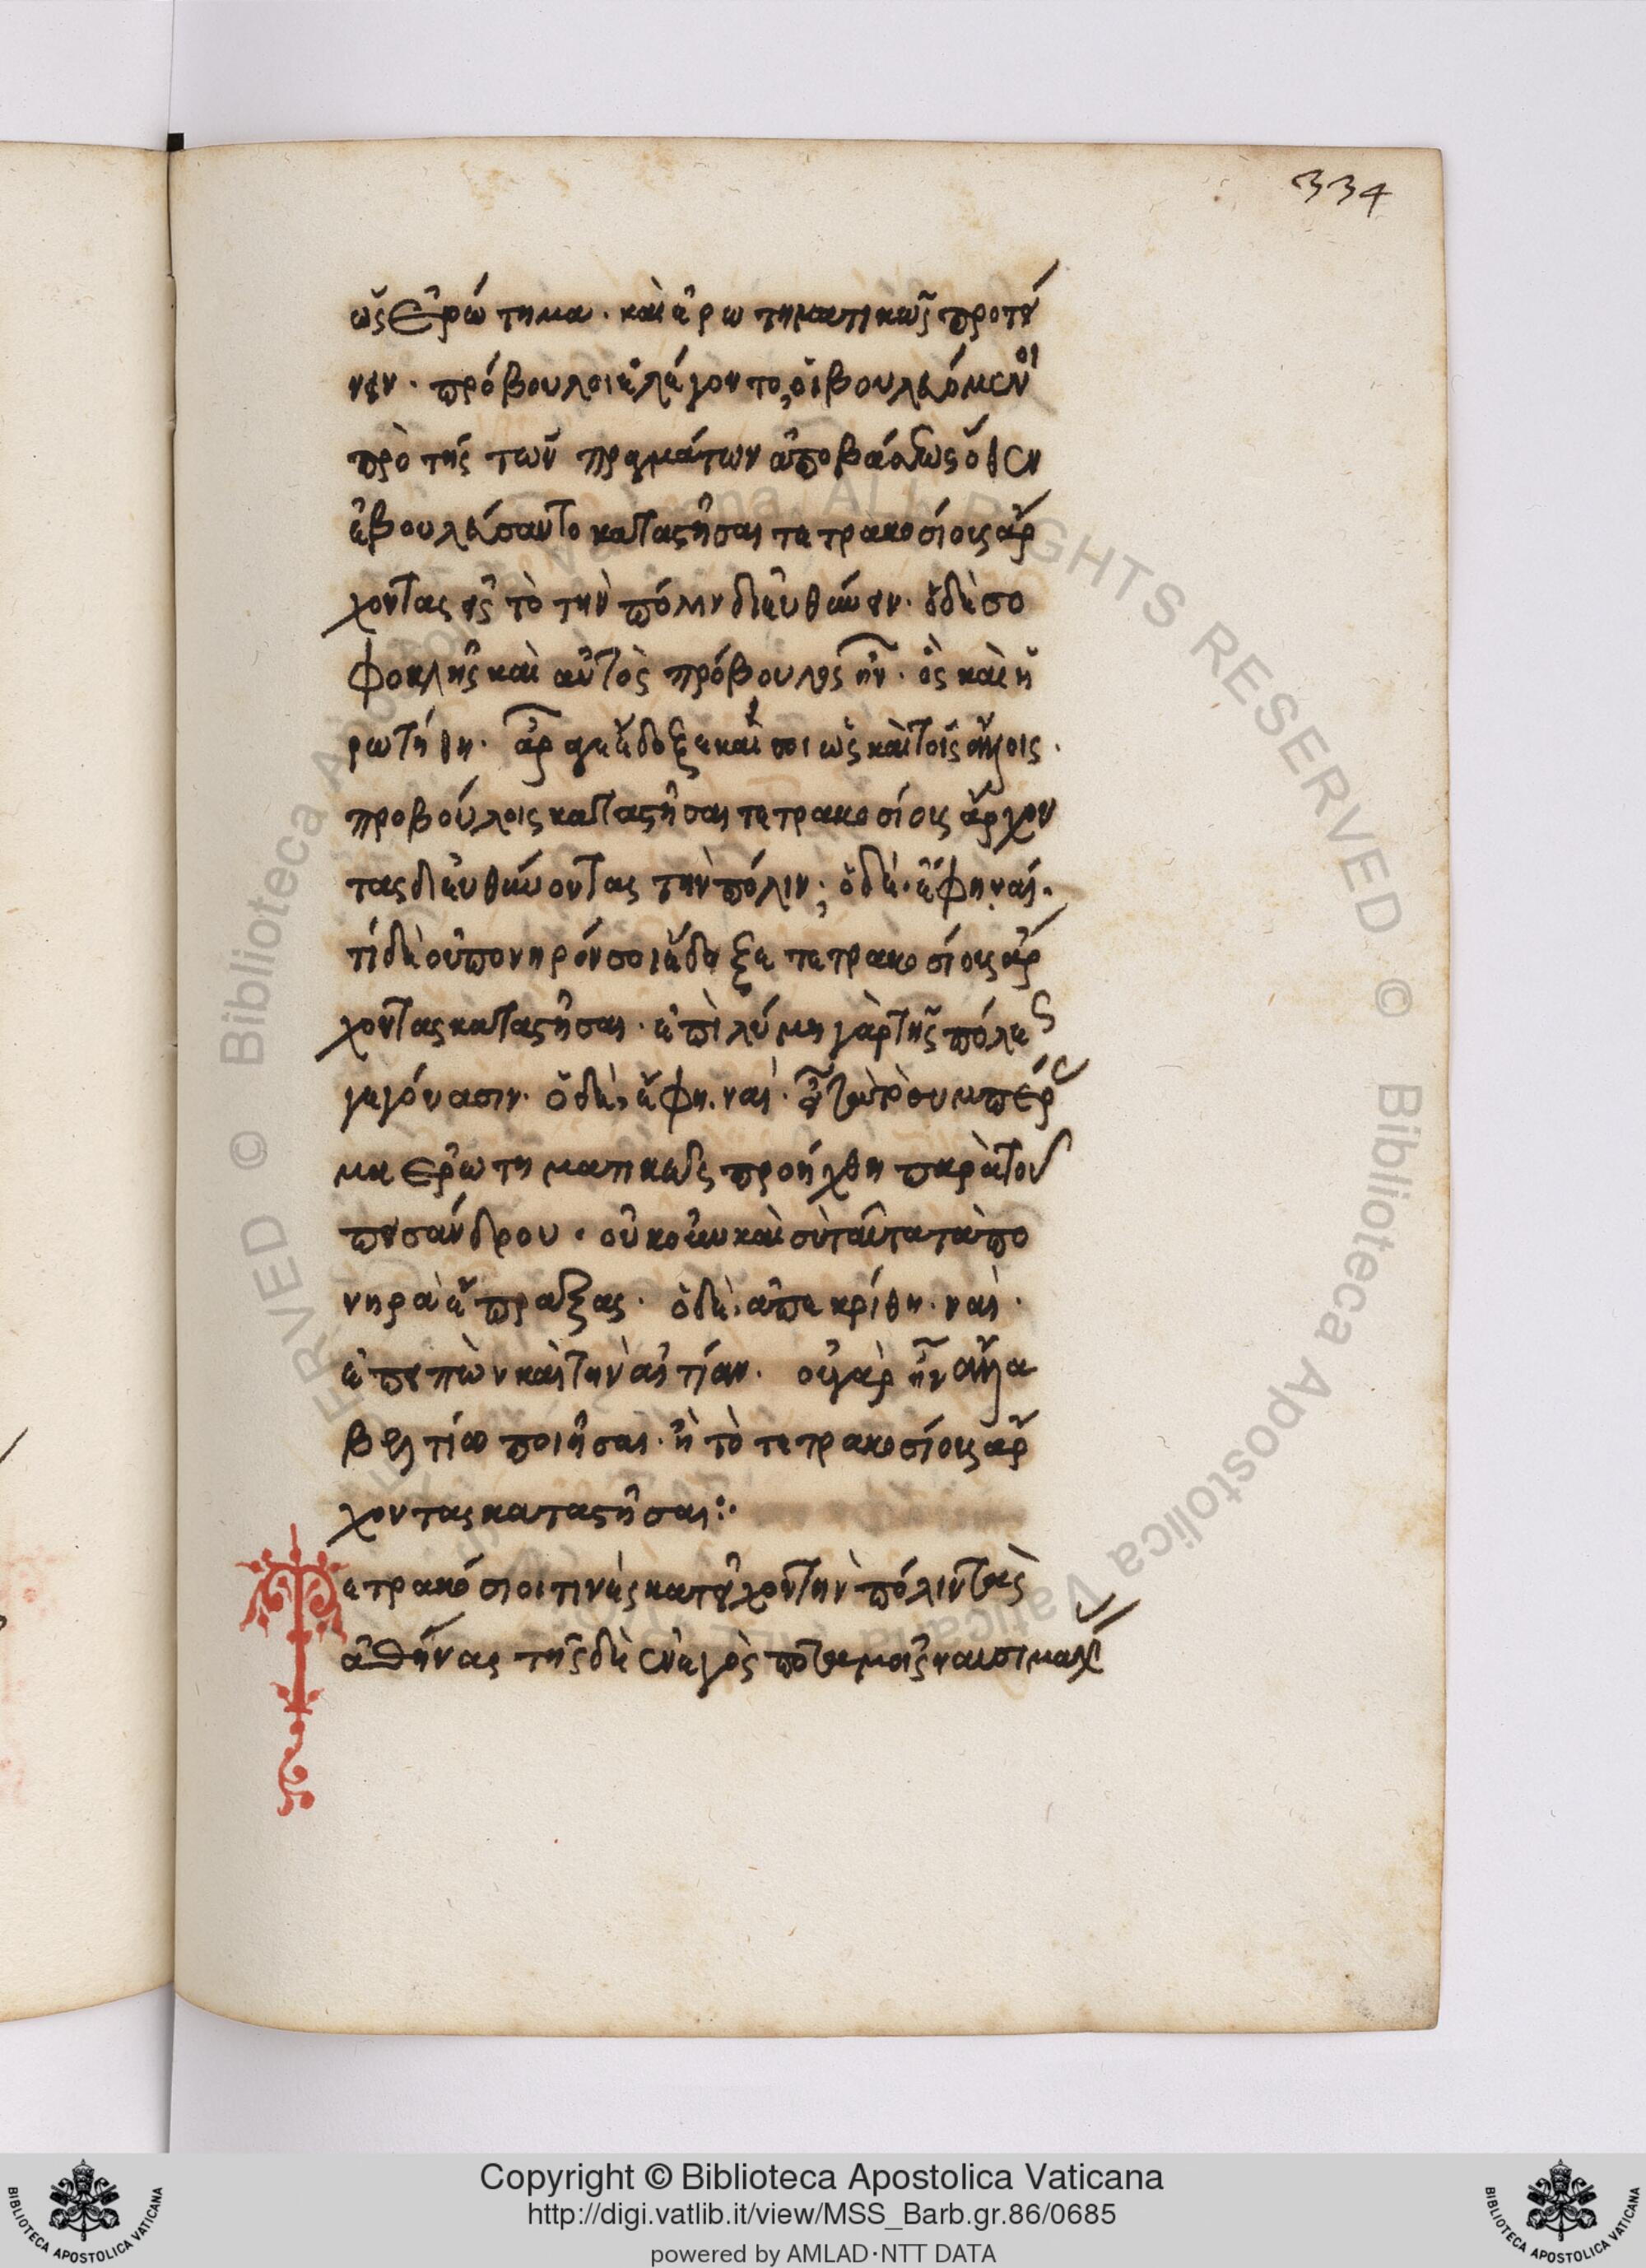 334
ὡς ἐρώτημα · καὶ ἐρωτηματικῶς προτεί
νειν · πρόβουλοι ἐλέγοντο, οἱ βουλευόμενοι
πρὸ τῆς τῶν πραγμάτων ἀποβάσεως ὅθεν
ἐβουλεύσαντο καταστῆσαι τετρακοσίους ἄρ
χοντας εἰς τὸ τὴν πόλιν διευθύνειν · ὁ δὲ σο
φοκλῆς καὶ αὐτὸς πρόβουλος ἦν · ὃς καὶ ἠ
ρωτήθη · ἆρά γε ἔδοξε καί σοι ὡς καὶ τοῖς ἄλλοις ·
προβούλοις καταστῆσαι τετρακοσίους ἄρχον
τας διευθύνοντας τὴν πόλιν; ὁ δὲ · ἔφη ναί ·
τί δὲ οὐ πονηρόν σοι ἔδοξε τετρακοσίους ἄρ
χοντας καταστῆσαι · ἐπὶ λύμη γὰρ τῆς πόλεως
γεγόνασιν · ὁ δὲ, ἔφη · ναί · εἶτα τὸ συμπέρασ
μα ἐρωτηματικῶς προήχθη παρὰ τοῦ
πεισάνδρου · οὐκοῦν καὶ σὺ ταῦτα τὰ πο
νηρὰ ἔπραξας · ὁ δὲ, ἀπεκρίθη · ναί ·
ἐπειπὼν καὶ τὴν αἰτίαν · οὐ γὰρ ἦν ἄλλα
βελτίω ποιῆσαι · ἢ τὸ τετρακοσίους ἄρ
χοντας καταστῆσαι :·
Τετρακόσιοι τινὲς κατεῖχον τὴν πόλιν τὰς
ἀθήνας τῆς δὲ ἐνεγὸς ποτε μοῖς ναυσιμαχί
Copyright © Biblioteca Apostolica Vaticana
http://digi.vatlib.it/view/MSS_Barb.gr.86/0685
powered by AMLAD·NTT DATA
BIBLIOTECA APOSTOLICA VATICANA
BIBLIOTECA APOSTOLICA VATICANA